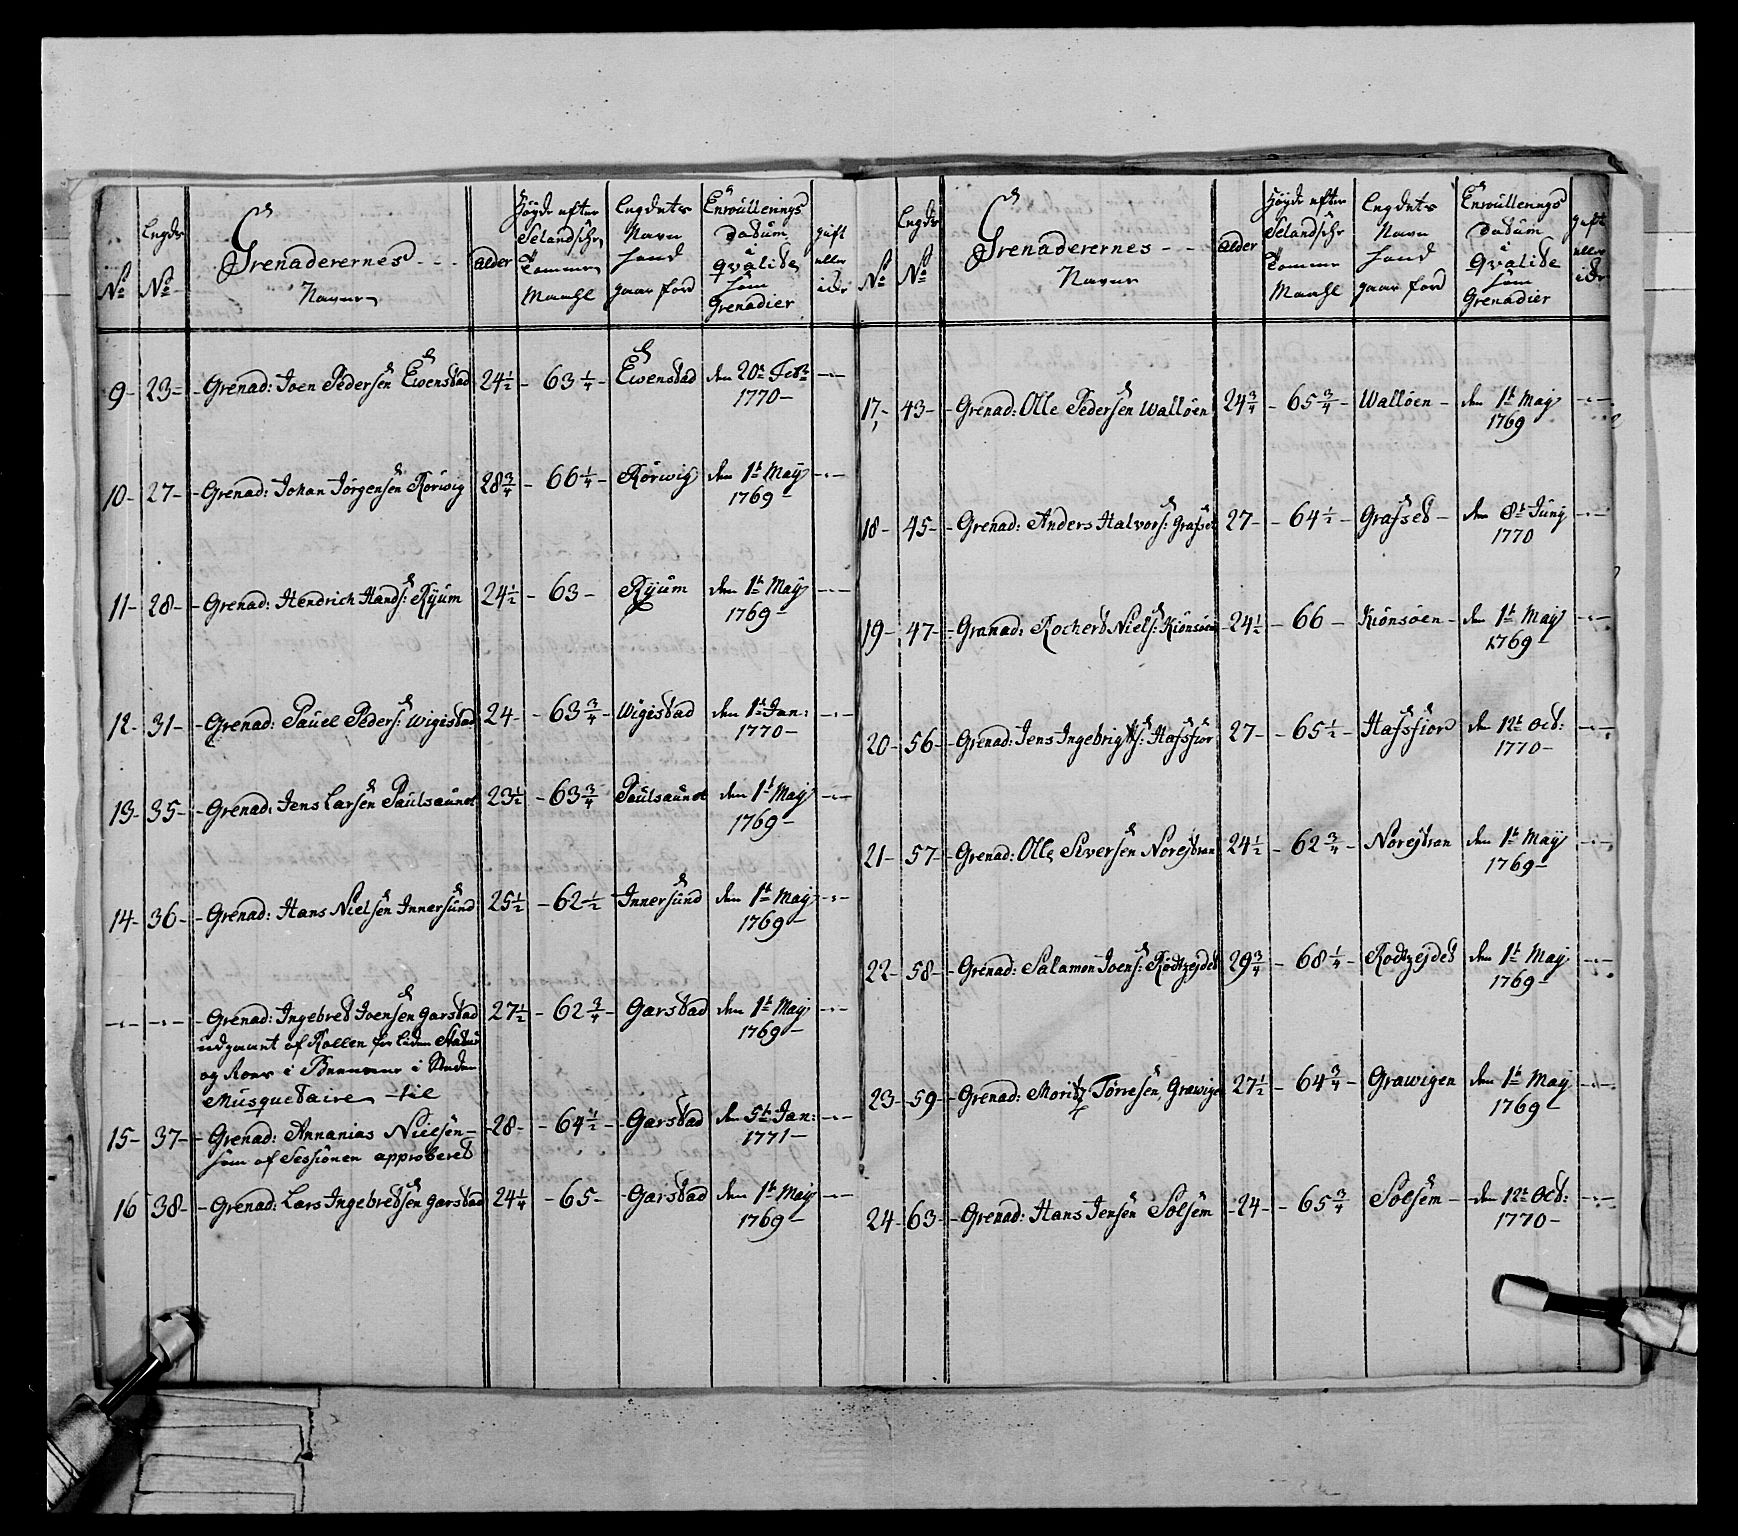 No | Legds No | Grenaderernes Navne | alder | Høyde efter Selandsche Tomme Maahl | Legdets Navn hand gaar for | Enroullerings Datum i Qvalite som Grenadier | gift eller icke
9- | 23- | Grenad: Joen Pedersen Ewenstad | 24½ | 63¼ | Ewenstad | den 20de Febr 1770 | -.-
10- | 27- | Grenad: Johan Jørgensen Rörwig | 28¾ | 66¼ | Rörwig | den 1te May 1769 | -.-
11- | 28- | Grenad: Hendrich Hands: Ryum | 24½ | 63 | Ryum | den 1te May 1769 | -.-
12- | 31- | Grenad: Pauel Peders: Wigestad | 24 | 63¾ | Wigestad | den 1te Jan: 1770 | -.-
13- | 35- | Grenad: Jens Larsen Paulsaunet | 23½ | 63¾ | Paulsaunet | den 1te May 1769 | -.-
14- | 36- | Grenad: Hans Nielsen Innersund | 25½ | 62½ | Innersund | den 1te May 1769 | -.-
-.- | -.- | Grenad: Ingebret Joensen Garstad | 27½ | 62¾ | Garstad | den 1te May 1769 | -.-
udgaaet af Rollen for liden
Musquetaire - til
15- | 37- | Grenad: Annanias Nielsen | 28 | 64½ | Garstad | den 5te Jan: 1771 | -.-
som af Sessionen approberet
16 | 38- | Grenad: Lars Ingebretsen Garstad | 24¼ | 65 | Garstad | den 1te May 1769 | -.-
No | Legds No | Grenaderernes Navne | alder | Høyde efter Selandschr Tomme Maahl | Legdets Navn hand gaar for | Enroullerings Datum i Qvalite som Grenadier | gift eller icke
17, | 43- | Grenad: Olle Pedersen Walløen | 24¾ | 65¾ | Walløen | den 1te May 1769 | -.-
18- | 45- | Grenad: Anders Halvors: Grafset | 27 | 64½ | Grafset | den 8te Juny 1770 | -.-
19- | 47- | Granad: Rochert Niels: Kiönsöen | 24½ | 66 | Kiönsöen | den 1te May 1769 | -.-
20- | 56- | Grenad: Jens Ingebrigts: Hafsfior | 27 | 65½ | Hafsfiord | den 12te Oct: 1770 | -.-
21- | 57- | Grenad: Olle Siversen Norejtran | 24½ | 62¾ | Norejtran | den 1te May 1769 | -.-
22- | 58- | Grenad: Salamon Joens: Rødtzejdet | 29¾ | 68¼ | Rodtzejdet | den 1te May 1769 | -.-
23- | 59- | Grenad: Moritz Tørresen Grawigen | 27½ | 64¾ | Grawigen | den 1te May 1769 | -.-
24- | 63- | Grenad: Hans Jensen Solsem | 24 | 65¾ | Solsem | den 12te Oct: 1770 | -.-